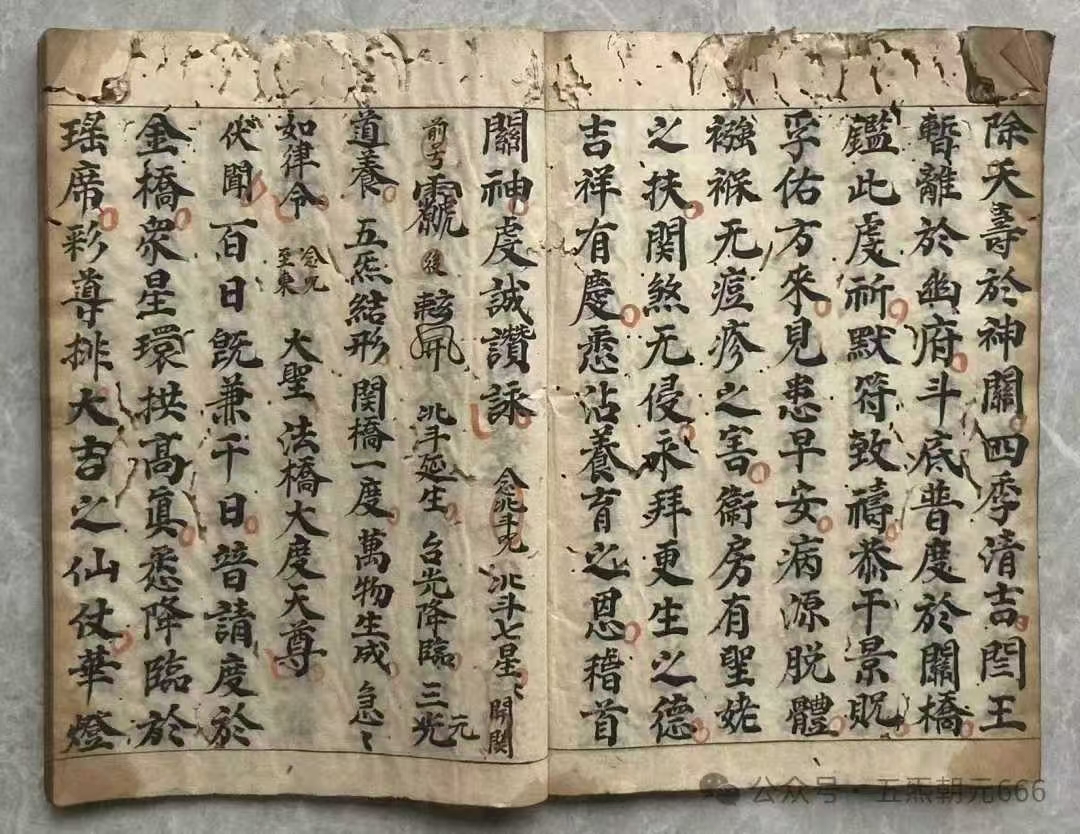 除夭壽於神關四季清吉閻王
暫離於幽府斗底普度於關橋
鑑此虔祈默符致禱恭干景貺
孚佑方來見患早安病源脱體
襁褓无痘疹之害衛房有聖姥
之扶関煞无侵永拜更生之德
吉祥有慶悉沾養育之恩稽首
關神虔誠讚詠 念北斗咒 北斗七星〻開関
前 後 北斗延生台光降臨三光元
道養五炁結形関橋一度萬物生成急〻
如律令 念咒至東 大聖法橋大度天尊
伏聞百日既兼千日暜請度於
金橋衆星環拱高真悉降臨於
瑶席彩導排大吉之仙仗華燈
公众号·五炁朝元666